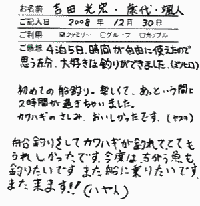 お名前 吉田 光宏・佳代・颯人
ご記入日 2008年 12月 30日
ご利用 ファミリー □グループ □カップル
ご感想 4泊5日、時間が自由に使えたので
思う存分、大好きな釣りができました。
初めての船釣り。楽しくて、あっという間に
2時間が過ぎちゃいました。
カワハギのさしみ、おいしかったです。
船釣りをしてカワハギが釣れてとても
うれしかったです。今度はちがう魚も
釣りたいです。また船に乗りたいです。
また来ます!!(ハヤト)